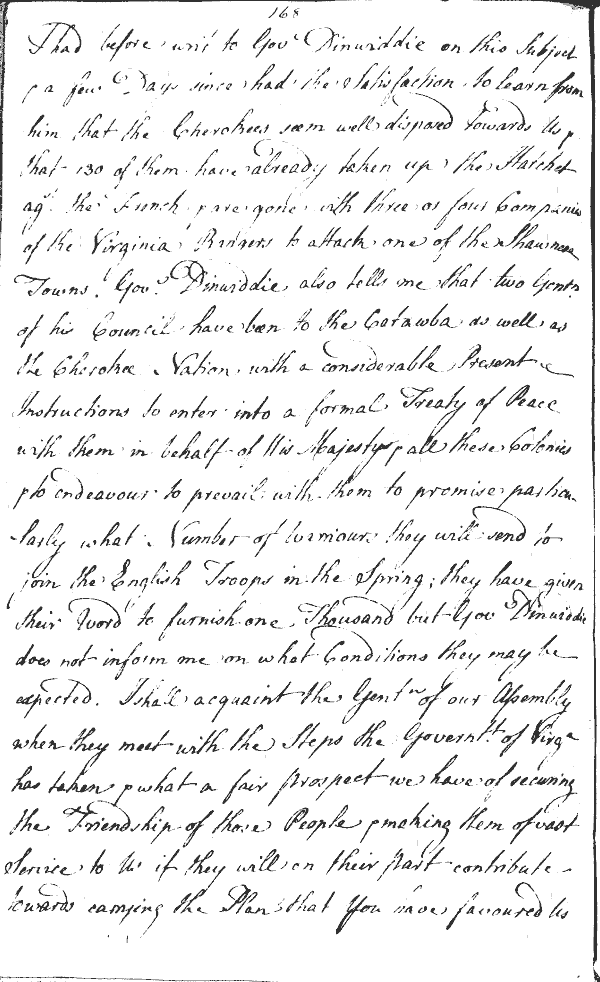 168
I had before writ to Govr. Dinwiddie on this Subject
& a few Days since had the Satisfaction to learn from
him that the Cherokees seem well disposed towards Us &
that 130 of them have already taken up the Hatchet
agt. the French & are gone with three or four Companies
of the Virginia Rangers to attack one of the Shawnese
Towns. Govr. Dinwiddie also tells me that two Gentn.
of his Council have been to the Catawba as well as
the Cherokee Nation with a considerable Present &
Instructions to enter into a formal Treaty of Peace
with them in behalf of His Majesty & all these Colonies
& to endeavour to prevail with them to promise particu-
larly what Number of Warriours they will send to
join the English Troops in the Spring; they have given
their Word to furnish one Thousand but Govr. Dinwiddie
does not inform me on what Conditions they may be
expected. I shall acquaint the Gentn. of our Assembly
when they meet with the Steps the Governt. of Virga
has taken & what a fair prospect we have of securing
the Friendship of those People & making them of vast
Service to Us if they will on their part contribute
towards carrying the Plan that You have favoured Us